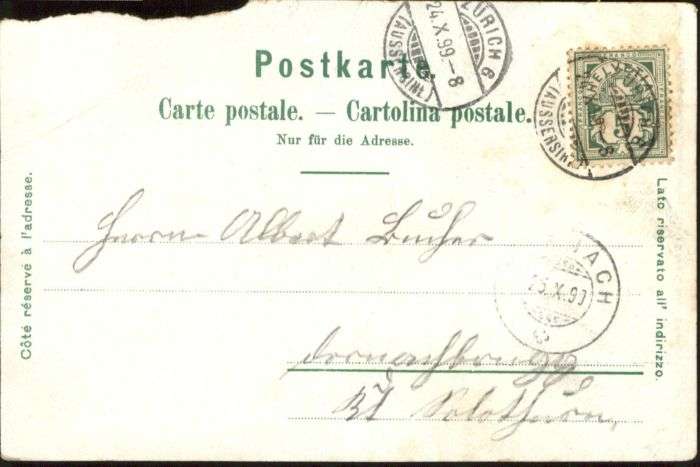 ZÜRICH 6
24.X.99.-8
(AUSSERSIHL)
HELVETIA
Postkarte.
Carte postale. — Cartolina postale.
Nur für die Adresse.
Côté réservé à l'adresse.
Lato riservato all' indirizzo.
Herrn Albert Bucher
ACH
25.X.99
Dornachbrugg
Kt Solothurn,